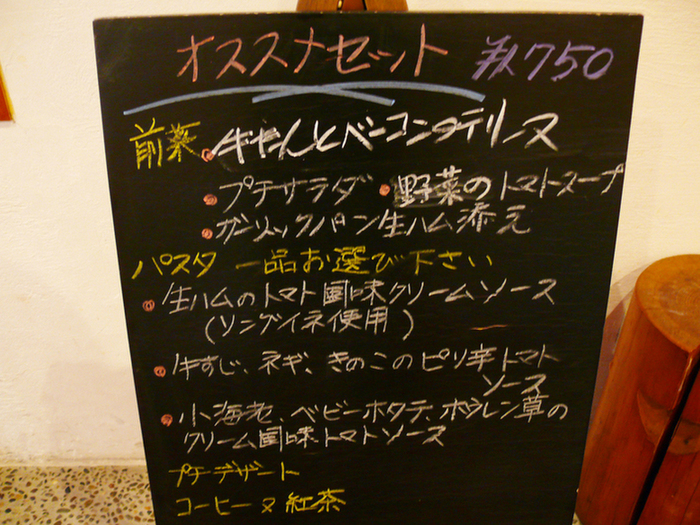 オススメセット ¥1750
前菜 牛たんとベーコンテリーヌ
プチサラダ 野菜のトマトスープ
ガーリックパン生ハム添え
パスタ 一品お選び下さい
生ハムのトマト風味クリームソース
(リングイネ使用)
牛すじ、ネギ、きのこのピリ辛トマト
ソース
小海老、ベビーホタテ、ホウレン草の
クリーム風味トマトソース
プチデザート
コーヒーヌ紅茶